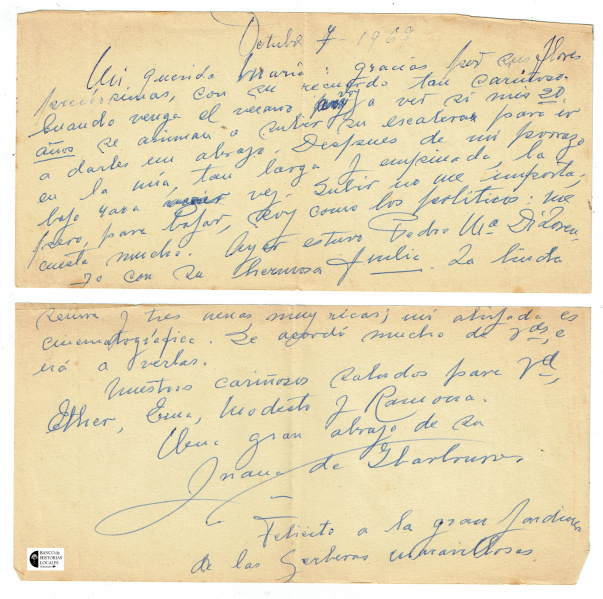 Octubre 7 - 1969
Mi querida María: gracias por sus flores
preciosísimas, con su recuerdo tan cariñoso.
Cuando venga el verano voy a ver si mis 20
años se animan a subir su escalera para ir
a darles un abrazo. Después de mi porrazo
en la mía, tan larga y empinada, la
bajo rara vez. Subir no me importa,
pero, para bajar, soy como los políticos: me
cuesta mucho. Ayer estuvo Pedro Mª
con su hermosa Julia. La linda
señora y tres nenas muy ricas; mi ahijada es
cinematográfica. Se acordó mucho de Vds, e
irá a verlas.
Nuestros cariñosos saludos para Vd,
Esther, Ema, Modesto y Ramona.
Un gran abrazo de su
Juana de Ibarbourou
Felicito a la gran Jardinera
de las Gerberas maravillosas.
BANCO de
HISTORIAS
LOCALES